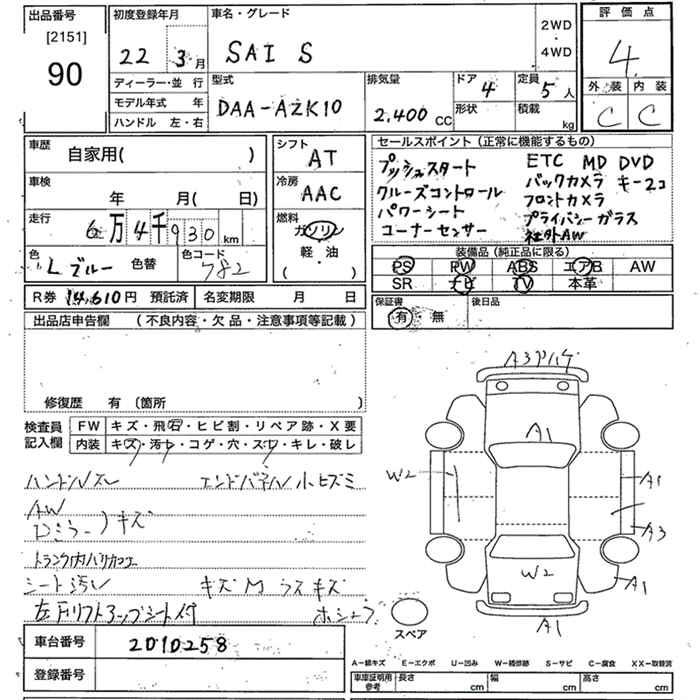 出品番号
[2151]
90
初度登録年月
22 3月
ディーラー・並 行
モデル年式 年
ハンドル 左・右
車名・グレード
SAI S
2WD
・
4WD
型式
DAA-AZK10
排気量
2,400 CC
ドア 4
形状
定員 5人
積載 kg
評 価 点
4
外 装 内 装
C C
車歴
自家用( )
車検
年 月( 日)
走行
6万4千930km
色
Lブルー 色替
色コード
782
シフト
AT
冷房
AAC
燃料
ガソリン
軽 油
( ・ )
R券 14,610円 預託済 名変期限 月 日
セールスポイント (正常に機能するもの)
プッシュスタート
クルーズコントロール
パワーシート
コーナーセンサー
ETC MD DVD
バックカメラ キー2コ
フロントカメラ
プライバシーガラス
社外AW
装備品 (純正品に限る)
PS PW ABS エアB AW
SR ナビ TV 本革
保証書
有・無
後日品
出品店申告欄 (不良内容・欠品・注意事項等記載)
修復歴 有 (箇所 )
検査員
記入欄
FW キズ・飛石・ヒビ割・リペア跡・X要
内装 キズ・汚レ・コゲ・穴・スレ・キレ・破レ
ハンドルスレ
エンドパネル小ヒズミ
AW
Dミラー)キズ
シート汚レ
キズM ラスキズ
左下リフトアップシート付
A3
A1
W2
A1
A3
W2
A1
A1
スペア
A-線キズ E-エクボ U-凹み W-補修跡 S-サビ C-腐食 XX-取替済
車台番号 2010258
登録番号
車庫証明用
参考
長さ cm 幅 cm 高さ cm